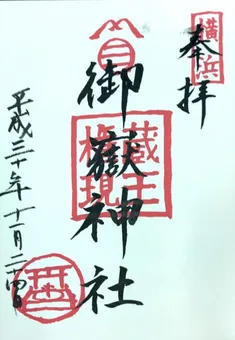 横浜
奉拝
御嶽神社
蔵王
権現
平成三十年十一月二十四日